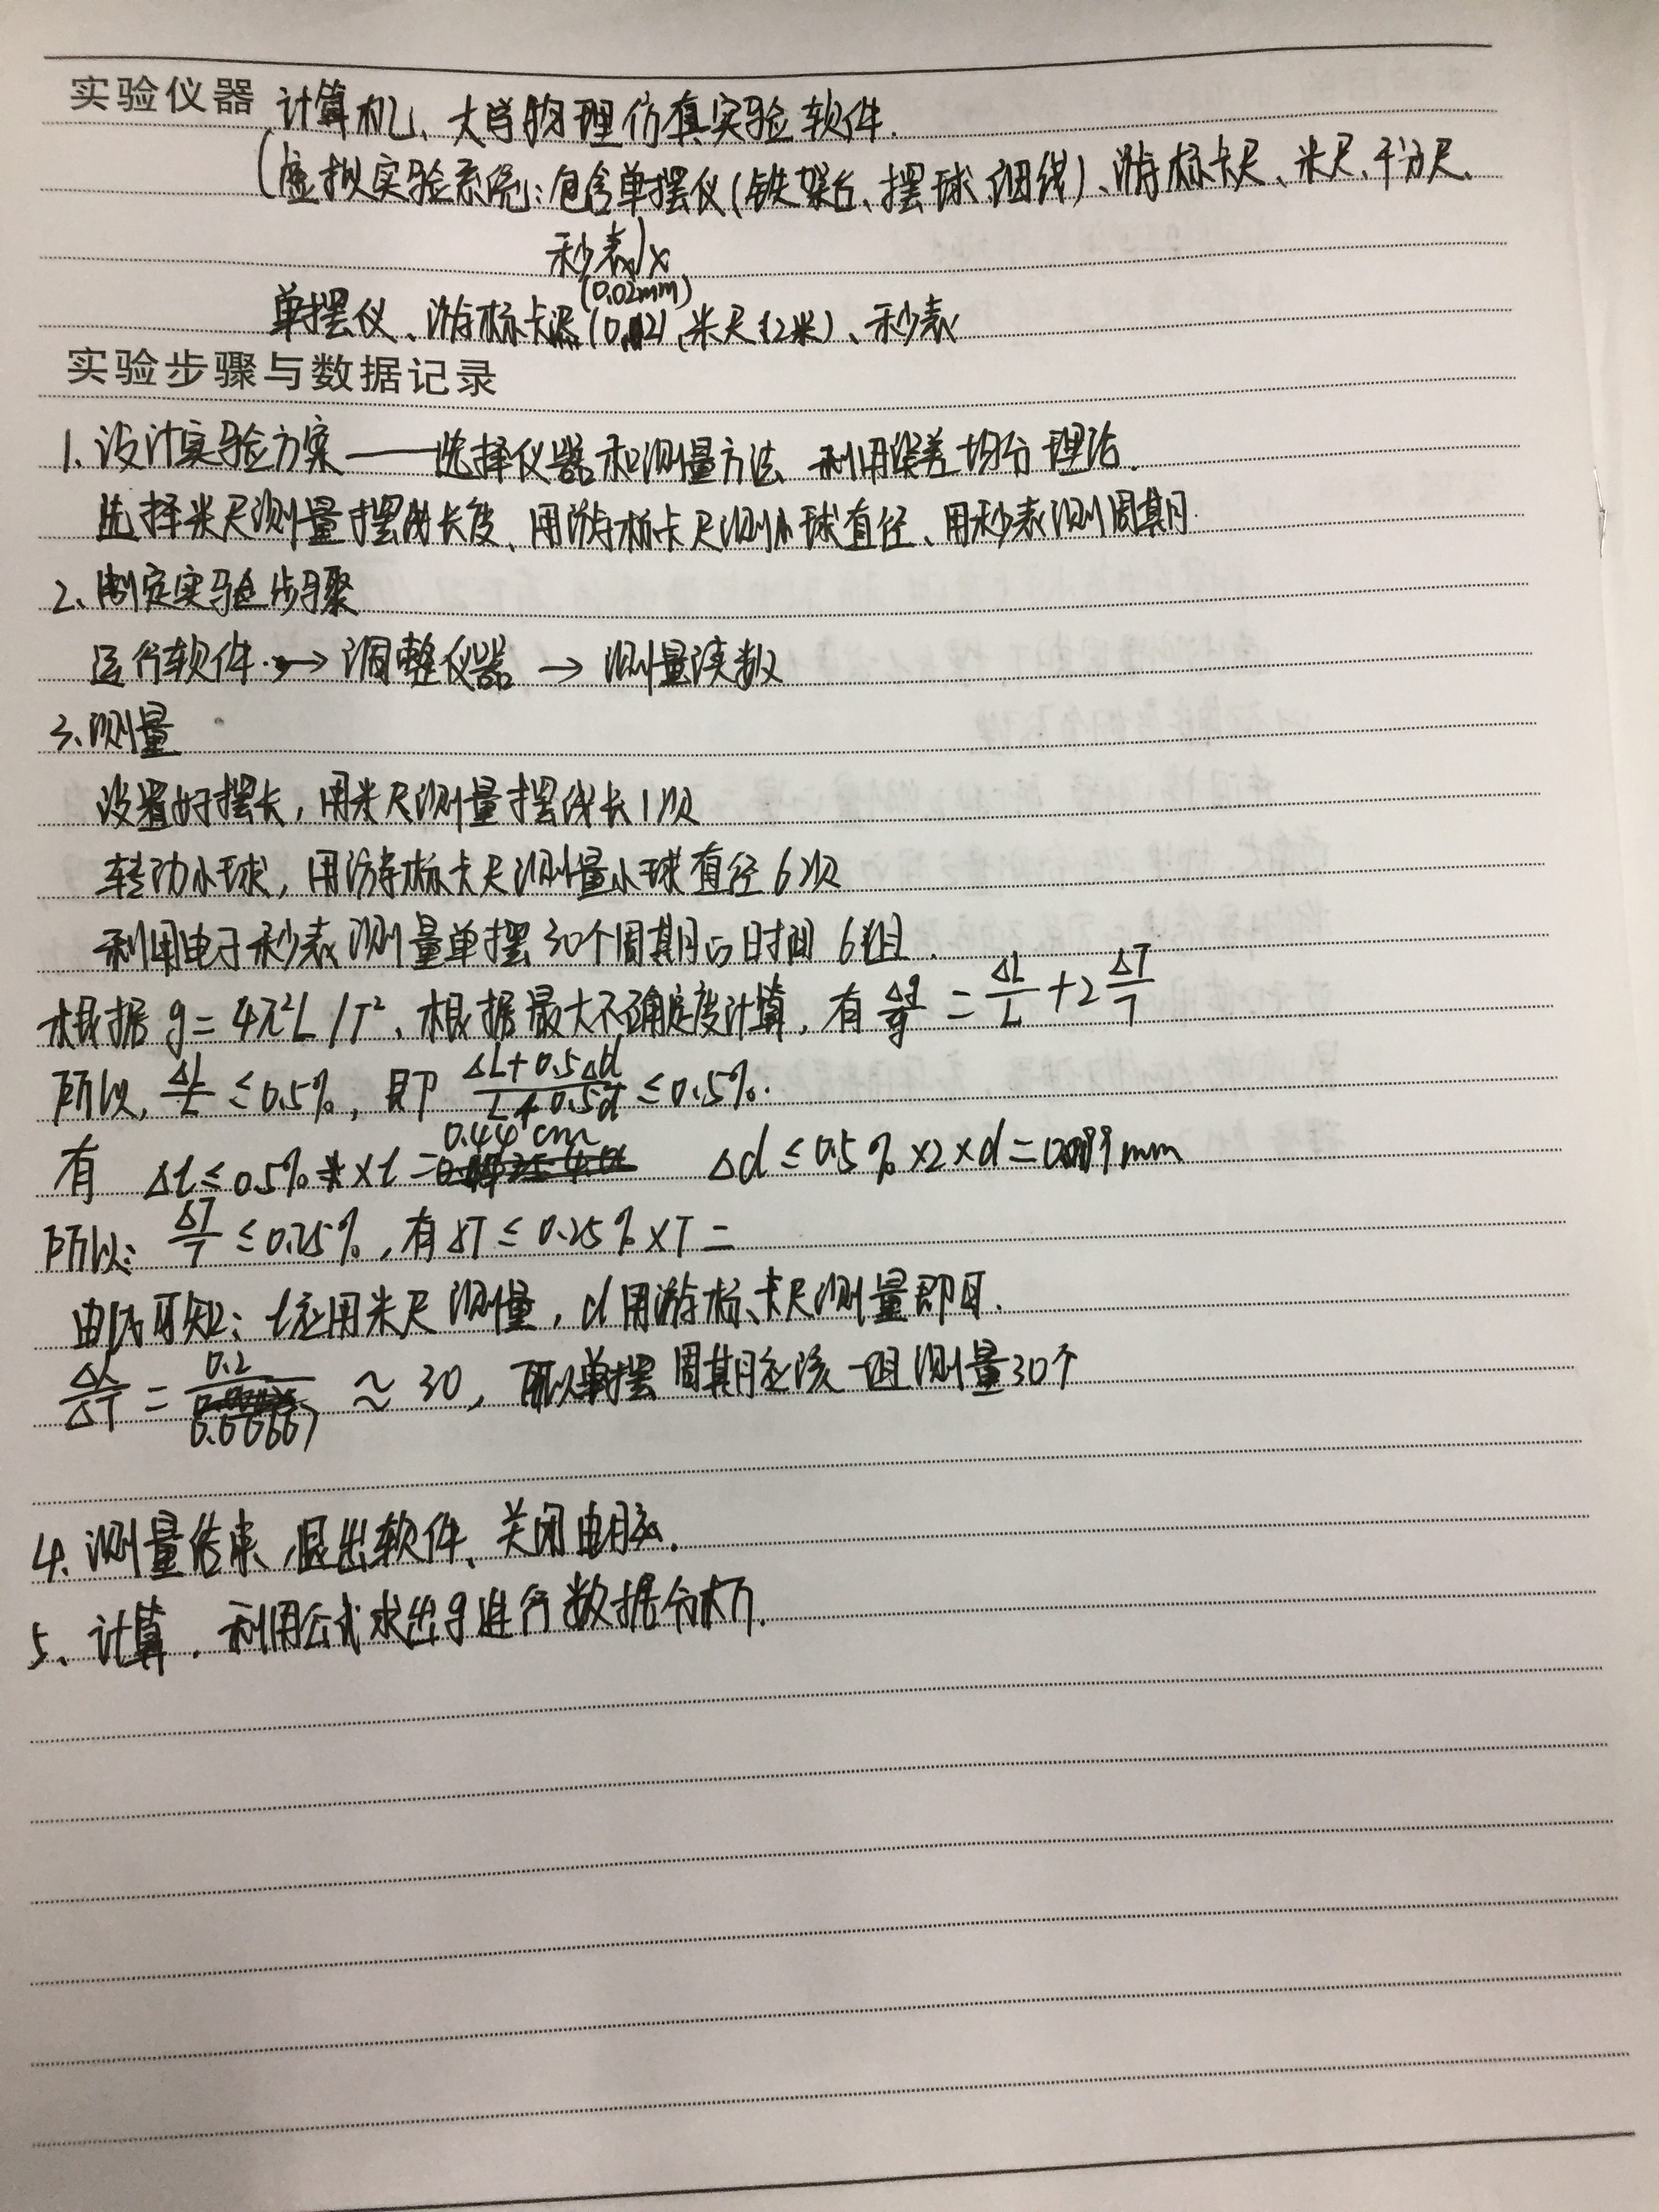 实验仪器 计算机、大学物理仿真实验软件.
(虚拟实验系统:包含单摆仪(铁架台、摆球、细线)、游标卡尺、米尺、千分尺、
秒表)x
(0.02mm)
单摆仪、游标卡尺 米尺(2米)、秒表
实验步骤与数据记录
1、设计实验方案——选择仪器和测量方法、利用误差均分理论.
选择米尺测量摆的长度、用游标卡尺测小球直径、用秒表测周期.
2、制定实验步骤
运行软件→调整仪器→测量读数
3、测量
设置好摆长,用米尺测量摆线长1次
转动小球,用游标卡尺测量小球直径6次
利用电子秒表测量单摆30个周期的时间6组.
根据 g=4π²L/T²、根据最大不确定度计算,有 Δg/g = ΔL/L + 2 ΔT/T
所以, ΔL/L ≤0.5%, 即 (ΔL+0.5Δd)/(L+0.5d) ≤0.5%.
有 Δl≤0.5%×l=0.44cm Δd≤0.5%×2×d=
所以: ΔT/T ≤0.25%,有ΔT≤0.25%×T=
由此可知:l应用米尺测量,d用游标卡尺测量即可.
= 0.2/0.00667 ≈30,所以单摆周期应该一组测量30个
4、测量结束,退出软件、关闭电脑.
5、计算.利用公式求出g进行数据分析.